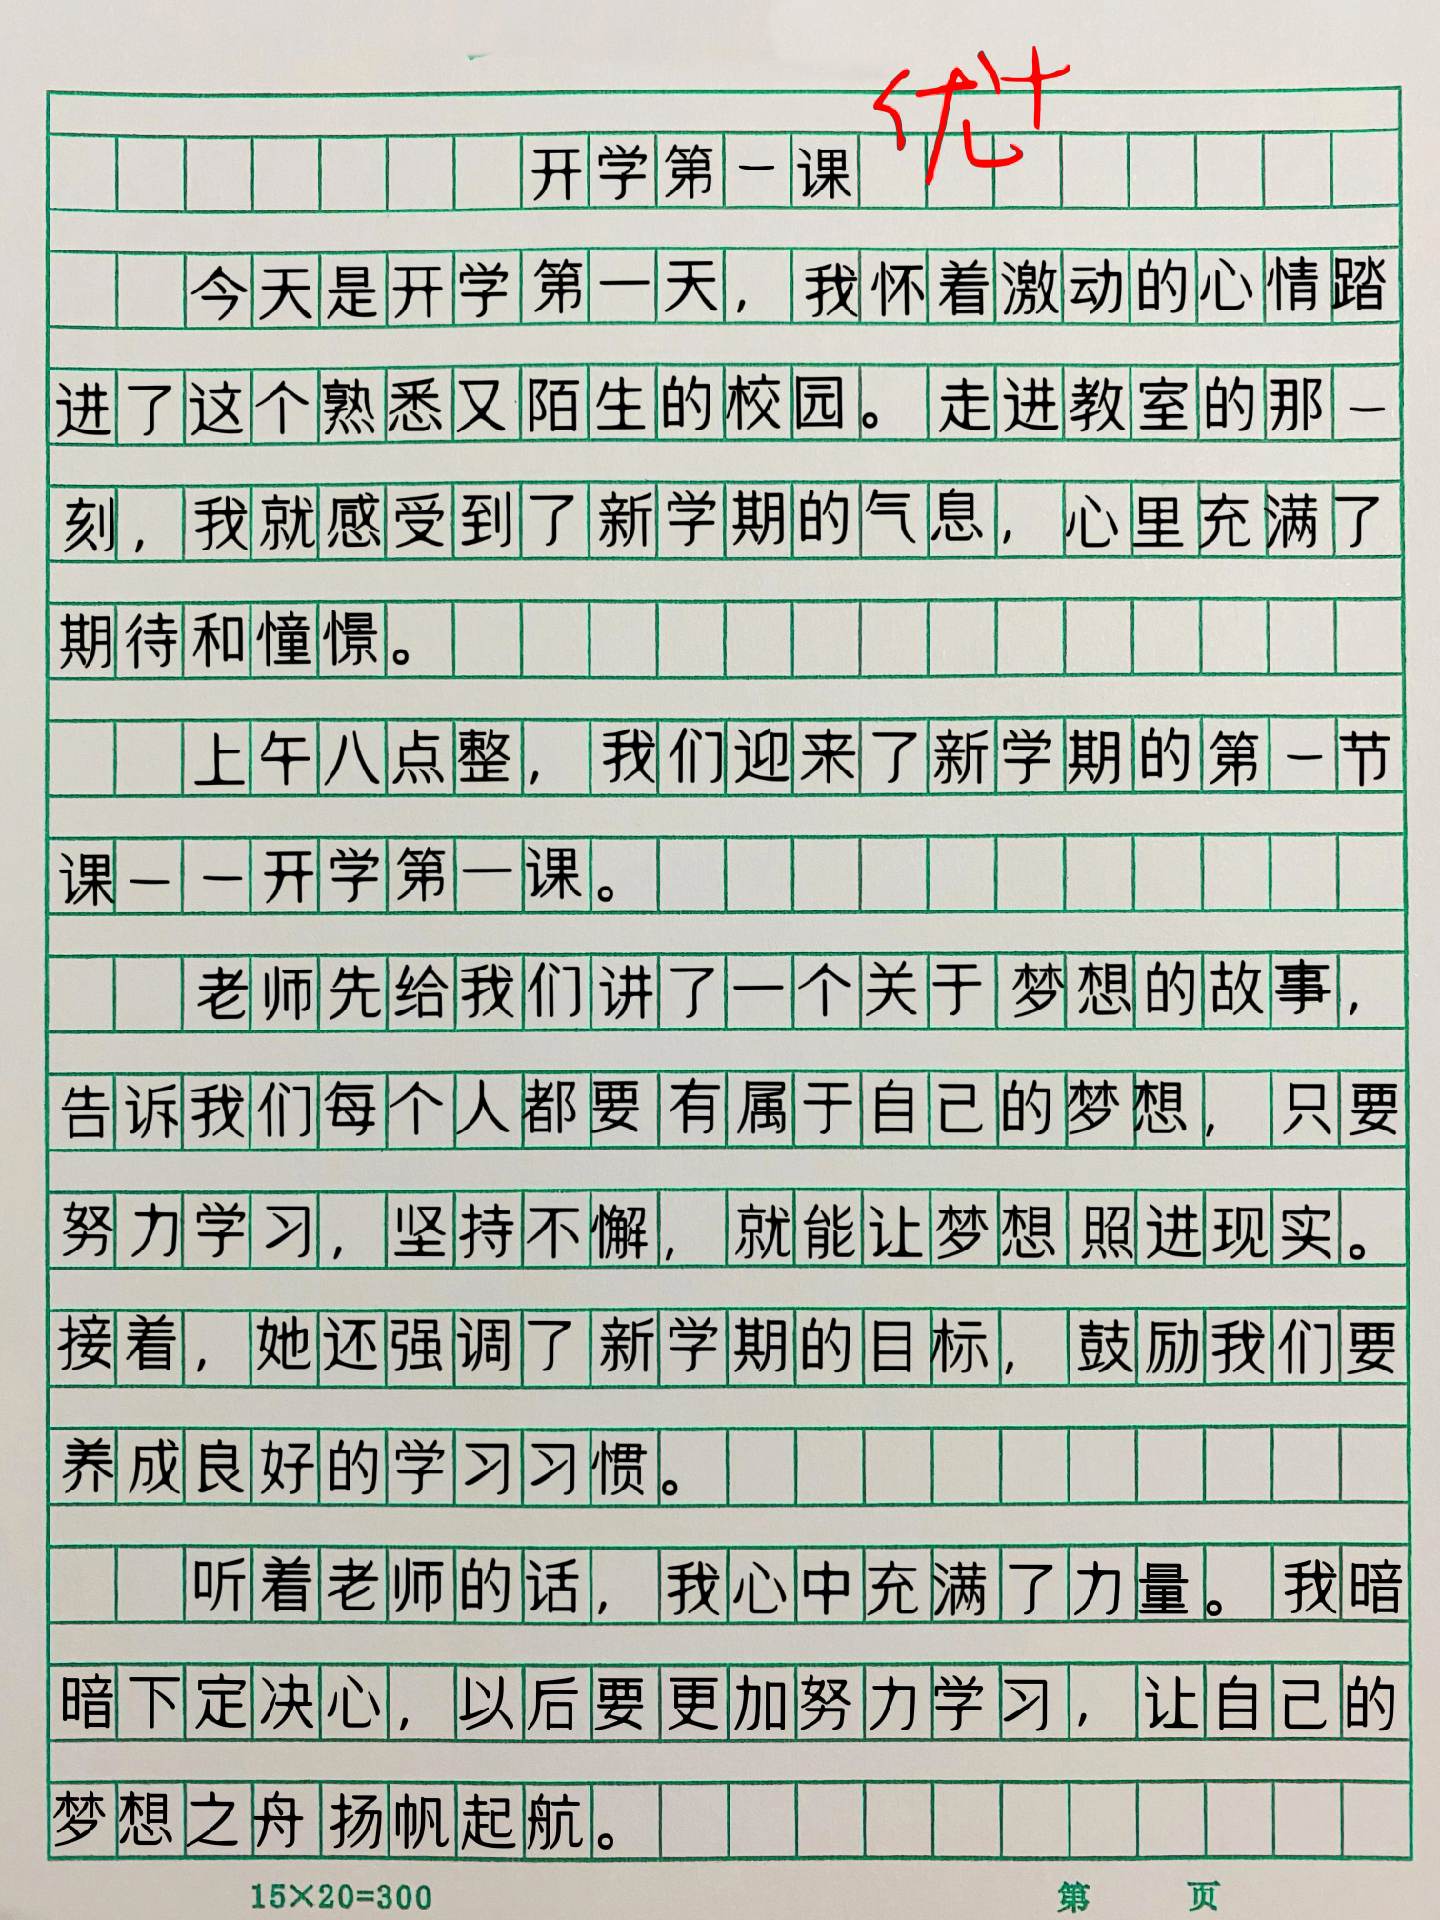 优+
开学第一课
今天是开学第一天，我怀着激动的心情踏
进了这个熟悉又陌生的校园。走进教室的那一
刻，我就感受到了新学期的气息，心里充满了
期待和憧憬。
上午八点整，我们迎来了新学期的第一节
课——开学第一课。
老师先给我们讲了一个关于梦想的故事，
告诉我们每个人都要有属于自己的梦想，只要
努力学习，坚持不懈，就能让梦想照进现实。
接着，她还强调了新学期的目标，鼓励我们要
养成良好的学习习惯。
听着老师的话，我心中充满了力量。我暗
暗下定决心，以后要更加努力学习，让自己的
梦想之舟扬帆起航。
15×20=300 第 页